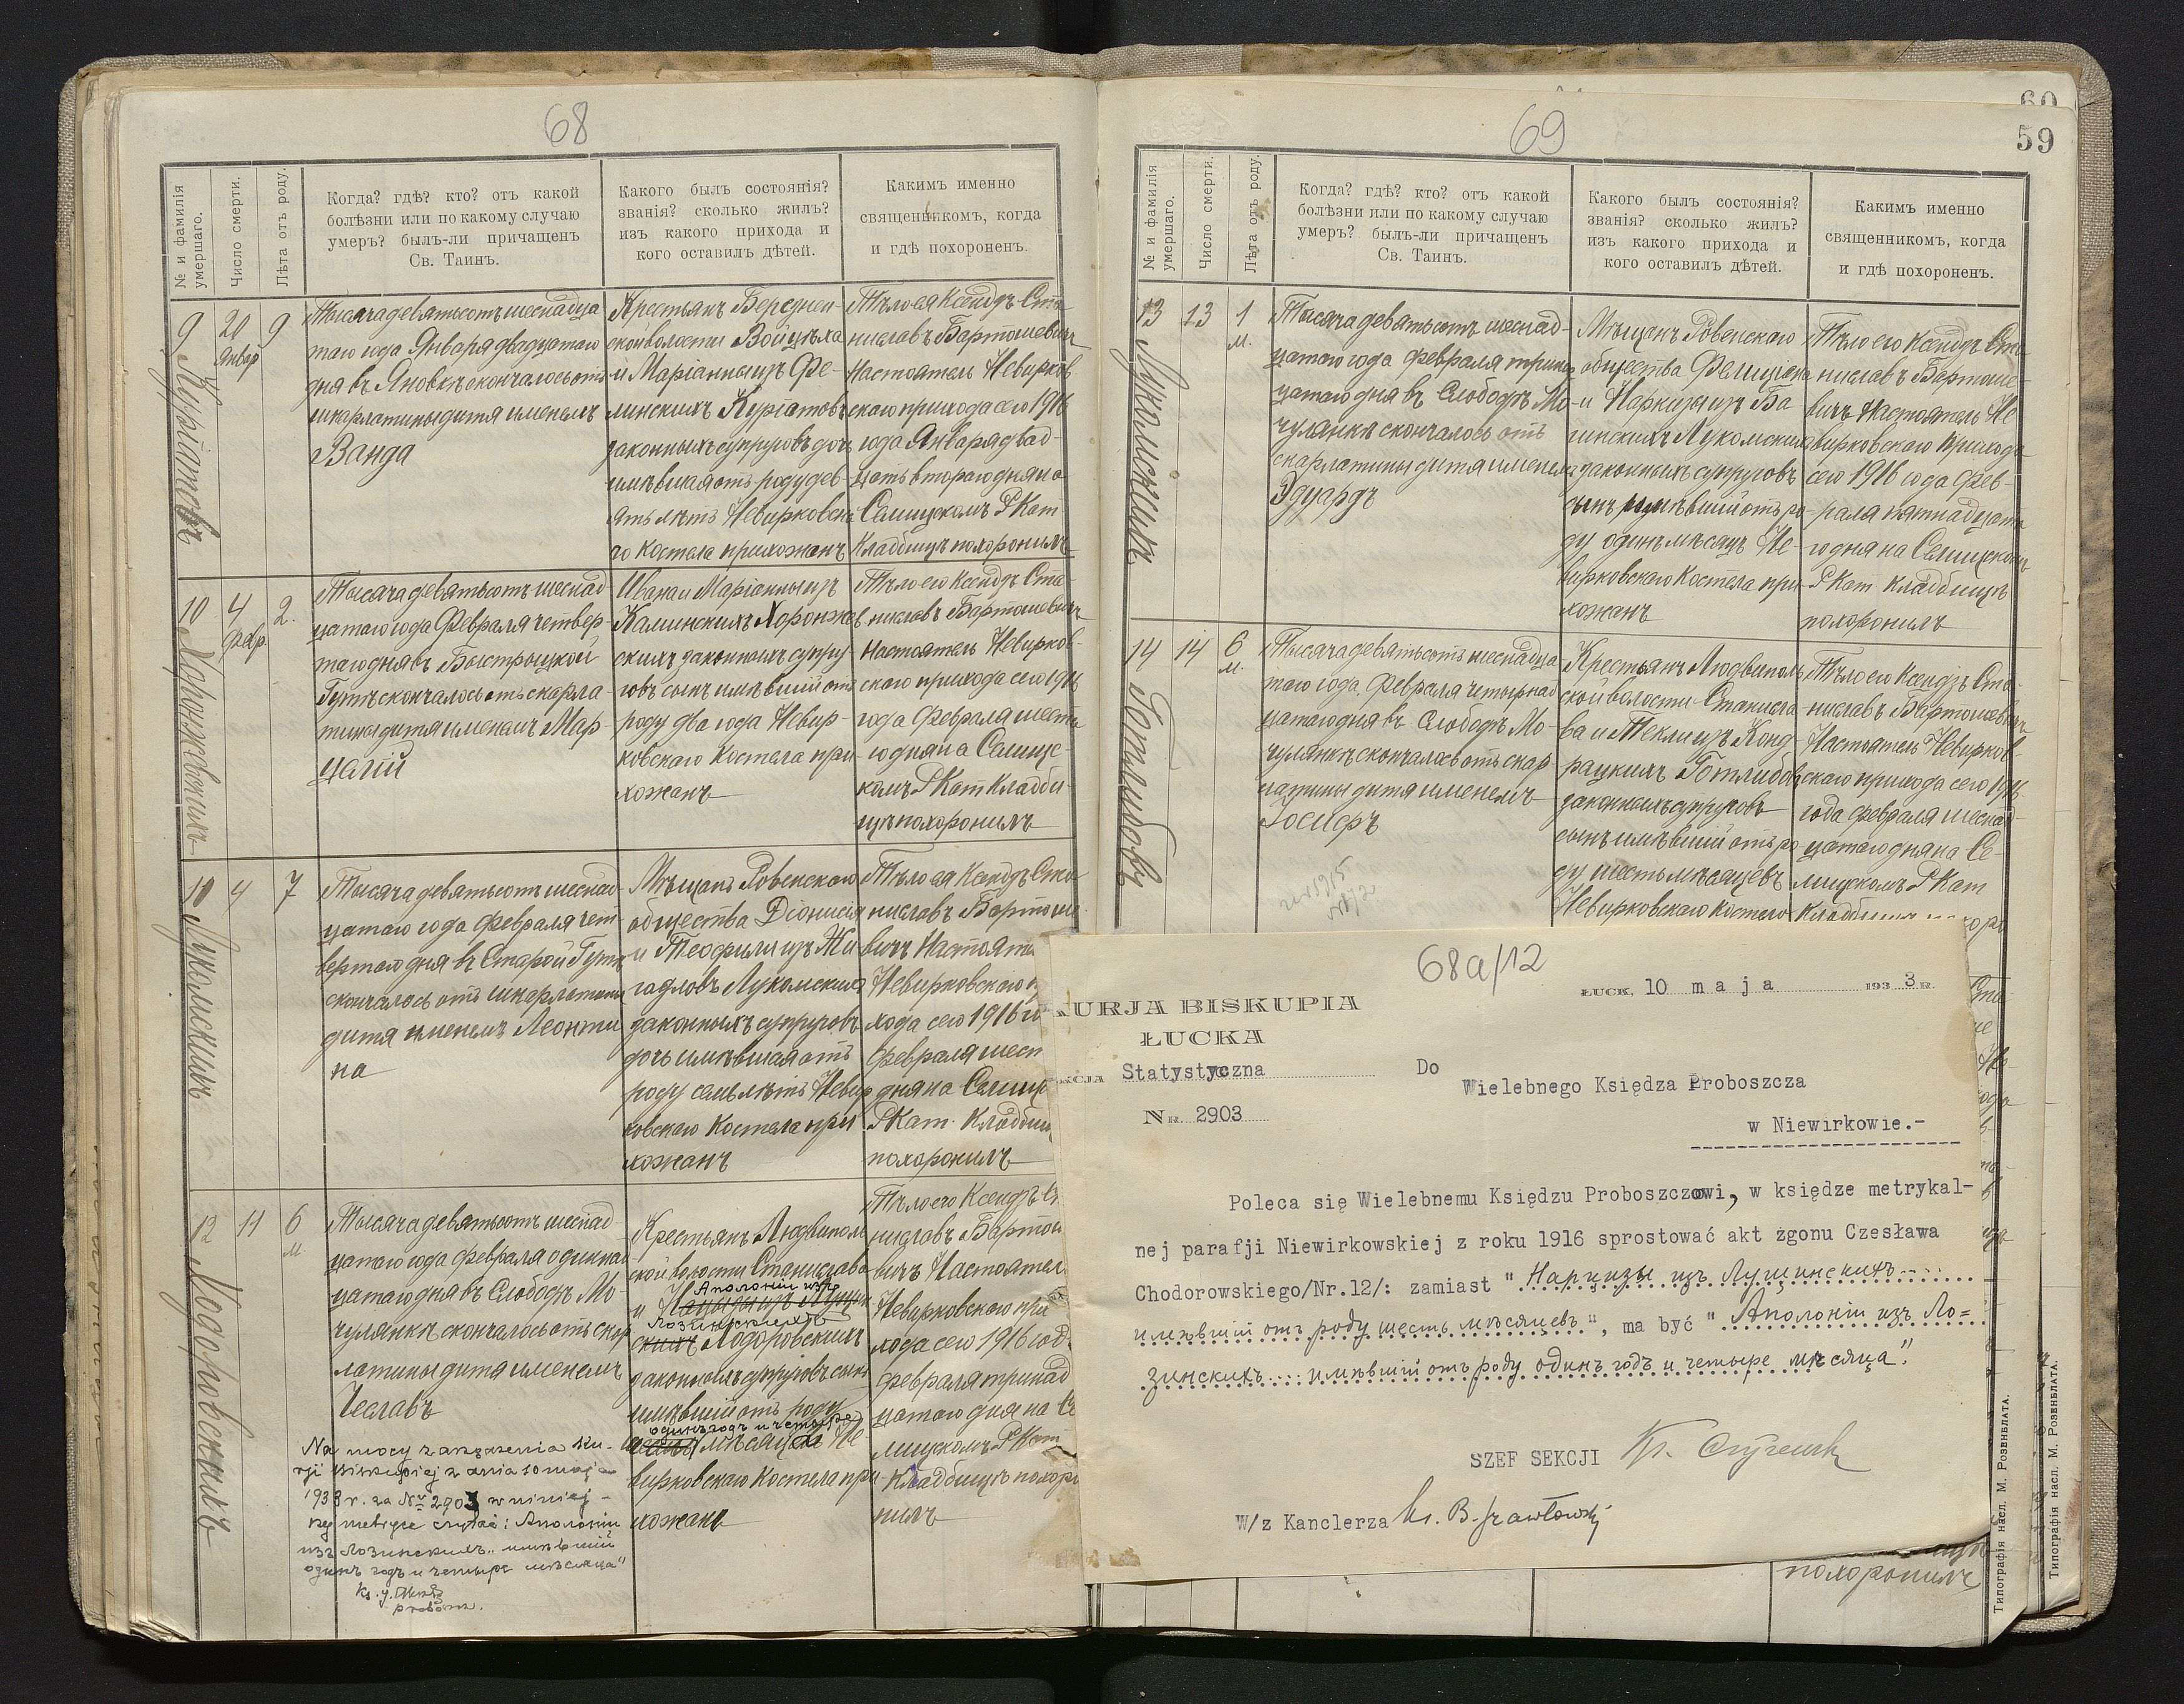 68
№ и фамилія умершаго.
Число смерти.
Лѣта отъ роду.
Когда? гдѣ? кто? отъ какой
болѣзни или по какому случаю
умеръ? былъ-ли причащенъ
Св. Таинъ.
Какого былъ состоянія?
званія? сколько жилъ?
изъ какого прихода и
кого оставилъ дѣтей.
Какимъ именно
священникомъ, когда
и гдѣ похороненъ.
9
20
Январ
9
Куріатовъ
Тысяча девятьсотъ шеснадца
таго года Января двадцатаго
дня въ Яновкѣ скончалось отъ
шкарлатины дитя именемъ
Ванда
Крестьянъ Бережнен-
ской волости Войцѣха
и Маріанны изъ Фе-
линскихъ Куріатовъ
законныхъ супруговъ дочь
имѣвшая отъ роду дев-
ять лѣтъ Невирковска
го Костела прихожанъ
Тѣло ея Ксендзъ Ста
ниславъ Бартошевичъ
Настоятель Невирков
скаго прихода сего 1916
года Января двад-
цать втораго дня на
Селищскомъ Р Кат
Кладбищѣ похоронилъ
10
4
Февр.
2.
Хоронжевскихъ
Тысяча девятьсотъ шеснад
цатаго года Февраля четвер-
таго дня въ Быстрыцкой
Гутѣ скончалось отъ скарла-
тины дитя именемъ Мар-
целій
Ивана и Маріанны изъ
Каминскихъ Хоронжев
скихъ законныхъ супру-
говъ сынъ имѣвшій отъ
роду два года Невир-
ковскаго Костела при-
хожанъ
Тѣло его Ксендзъ Ста-
ниславъ Бартошевичъ
Настоятель Невирков-
скаго прихода сего 1916
года Февраля шеста
го дня на Селищс-
комъ Р Кат Кладби-
щѣ похоронилъ
11
4
7
Лукомскихъ
Тысяча девятьсотъ шеснад-
цатаго года Февраля чет-
вертаго дня въ Старой Гутѣ
скончалось отъ шкарлатины
дитя именемъ Леонти
на
Мѣщанъ Ровенскаго
общества Діонисія
и Теофили изъ Жи
гадловъ Лукомскихъ
законныхъ супруговъ
дочь имѣвшая отъ
роду семь лѣтъ Невир
ковскаго Костела при
хожанъ
Тѣло ея Ксендзъ Ста
ниславъ Бартоше
вичъ Настоят
Невирковскаго п
хода сего 1916 г
Февраля шест
дня на Селищ
Р Кат. Кладби
похоронилъ
12
11
6
м.
Ходоровскихъ
Тысяча девятьсотъ шеснад
цатаго года Февраля одиннад
цатаго дня въ Слободѣ Мо-
чулянкѣ скончалось отъ скар
латины дитя именемъ
Чеславъ
Na mocy zarządzenia Ku-
rji Biskupiej z dnia 10 maja
1933 r. za Nr 2903 w niniej-
szej metryce czytać: Аполоніи
изъ Лозинскихъ.. имѣвшій
одинъ годъ и четыре мѣсяца"
Крестьянъ Людвиполь
ской волости Станислава
Аполоніи изъ
Лозинскихъ
скихъ Ходоровскихъ
законныхъ супруговъ сынъ
имѣвшій отъ роду
одинъ годъ и четыре
мѣсяца Не
вирковскаго Костела при
хожанъ
Тѣло его Ксендзъ С
ниславъ Бартош
вичъ Настоятел
Невирковскаго при
хода сего 1916 год
Февраля тринад
цатаго дня на Се
лищскомъ Р Кат
Кладбищѣ похоро
нилъ
69
60
59
№ и фамилія умершаго.
Число смерти.
Лѣта отъ роду.
Когда? гдѣ? кто? отъ какой
болѣзни или по какому случаю
умеръ? былъ-ли причащенъ
Св. Таинъ.
Какого былъ состоянія?
званія? сколько жилъ?
изъ какого прихода и
кого оставилъ дѣтей.
Какимъ именно
священникомъ, когда
и гдѣ похороненъ.
13
13
1
м.
Лукомскихъ
Тысяча девятьсотъ шеснад-
цатаго года Февраля трина
цатаго дня въ Слободѣ Мо-
чулянкѣ скончалось отъ
скарлатины дитя именемъ
Эдуардъ
Мѣщанъ Ровенскаго
общества Фелиціана
и Наркизы изъ Ба
гинскихъ Лукомскихъ
законныхъ супруговъ
сынъ имѣвшій отъ ро-
ду одинъ мѣсяцъ Не-
вирковскаго Костела при-
хожанъ
Тѣло его Ксендзъ Ста
ниславъ Бартоше-
вичъ Настоятель Не
вирковскаго прихода
сего 1916 года Фев-
раля пятнадцата
го дня на Селищскомъ
Р Кат Кладбищѣ
похоронилъ
14
14
6
м.
Готлибовъ
Тысяча девятьсотъ шеснадца
таго года Февраля четырнад
цатаго дня въ Слободѣ Мо-
чулянкѣ скончалось отъ скар-
латины дитя именемъ
Іосифъ
Крестьянъ Людвиполь
ской волости Станисла-
ва и Теклы изъ Конд-
рацкихъ Готлибовъ
законныхъ супруговъ
сынъ имѣвшій отъ ро-
ду шесть мѣсяцевъ
Невирковскаго Костела
Тѣло его Ксендзъ Ста-
ниславъ Бартошевичъ
Настоятель Невирков-
скаго прихода сего 1916
года Февраля шеснад-
цатаго дня на Се-
лищскомъ Р Кат
68a/12
KURJA BISKUPIA
ŁUCKA
SEKCJA Statystyczna
NR. 2903
ŁUCK, 10 maja 1933 R.
Do
Wielebnego Księdza Proboszcza
w Niewirkowie.-
Poleca się Wielebnemu Księdzu Proboszczowi, w księdze metrykal-
nej parafji Niewirkowskiej z roku 1916 sprostować akt zgonu Czesława
Chodorowskiego/Nr.12/: zamiast "Нарцизы изъ Лущинскихъ....
имѣвшій отъ роду шесть мѣсяцевъ", ma być "Аполоніи изъ Ло=
зинскихъ....имѣвшій отъ роду одинъ годъ и четыре мѣсяца".
SZEF SEKCJI
W/z Kanclerza
похоронилъ
Типографія насл. М. Розенблата.
Типографія насл. М. Розенблата.